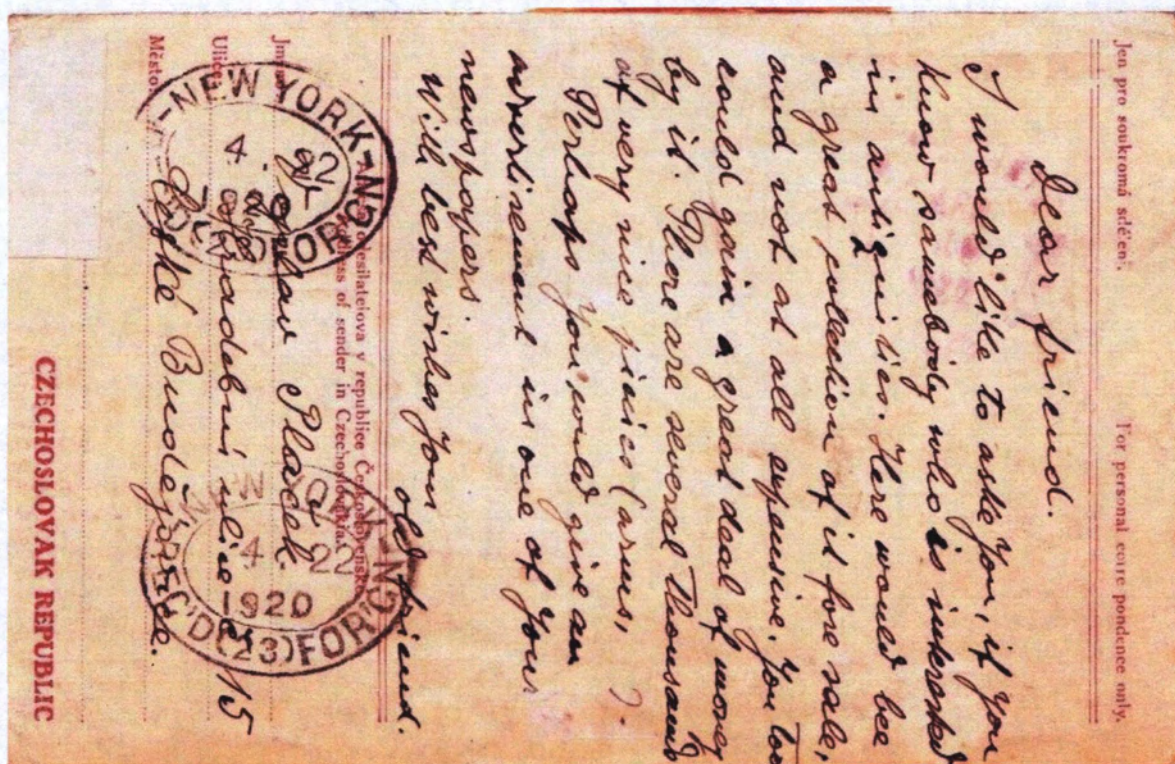 Jen pro soukromá sdělení.
For personal corre pondence only.
Dear friend.
I would like to aske You, if You
know samebody who is interested
in antiquities. Here would bee
a great collection of it fore sale,
and not at all expensive. You too
could gain a great deal of money
by it. There are several Thousand
of very nice pieces (arms, ?.
Perhaps You would give an
advertisement in one of Your
newspapers.
With best wishes Your
old friend.
odesilatelova v republice Československé
Address of sender in Czechoslovakia.
Jméno
Ulice
Město
Plaček.
ulice č. 15
České Budějovice.
NEW YORK N.
4
22
FOR
4
22
1920
REC'D (23) FOR'G
CZECHOSLOVAK REPUBLIC